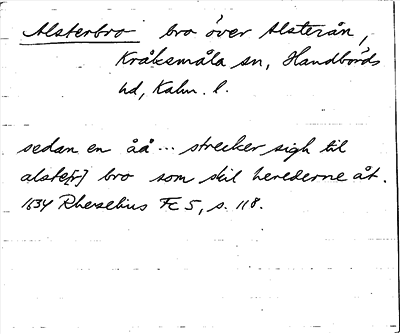 Alsterbro bro över Alsterån,
Kråksmåla sn, Handbörds
hd, Kalm. l.
sedan en åå ... strecker sigh til
alste[r] bro som skil herederne åt.
1634 Rhezelius Fc 5, s. 118.